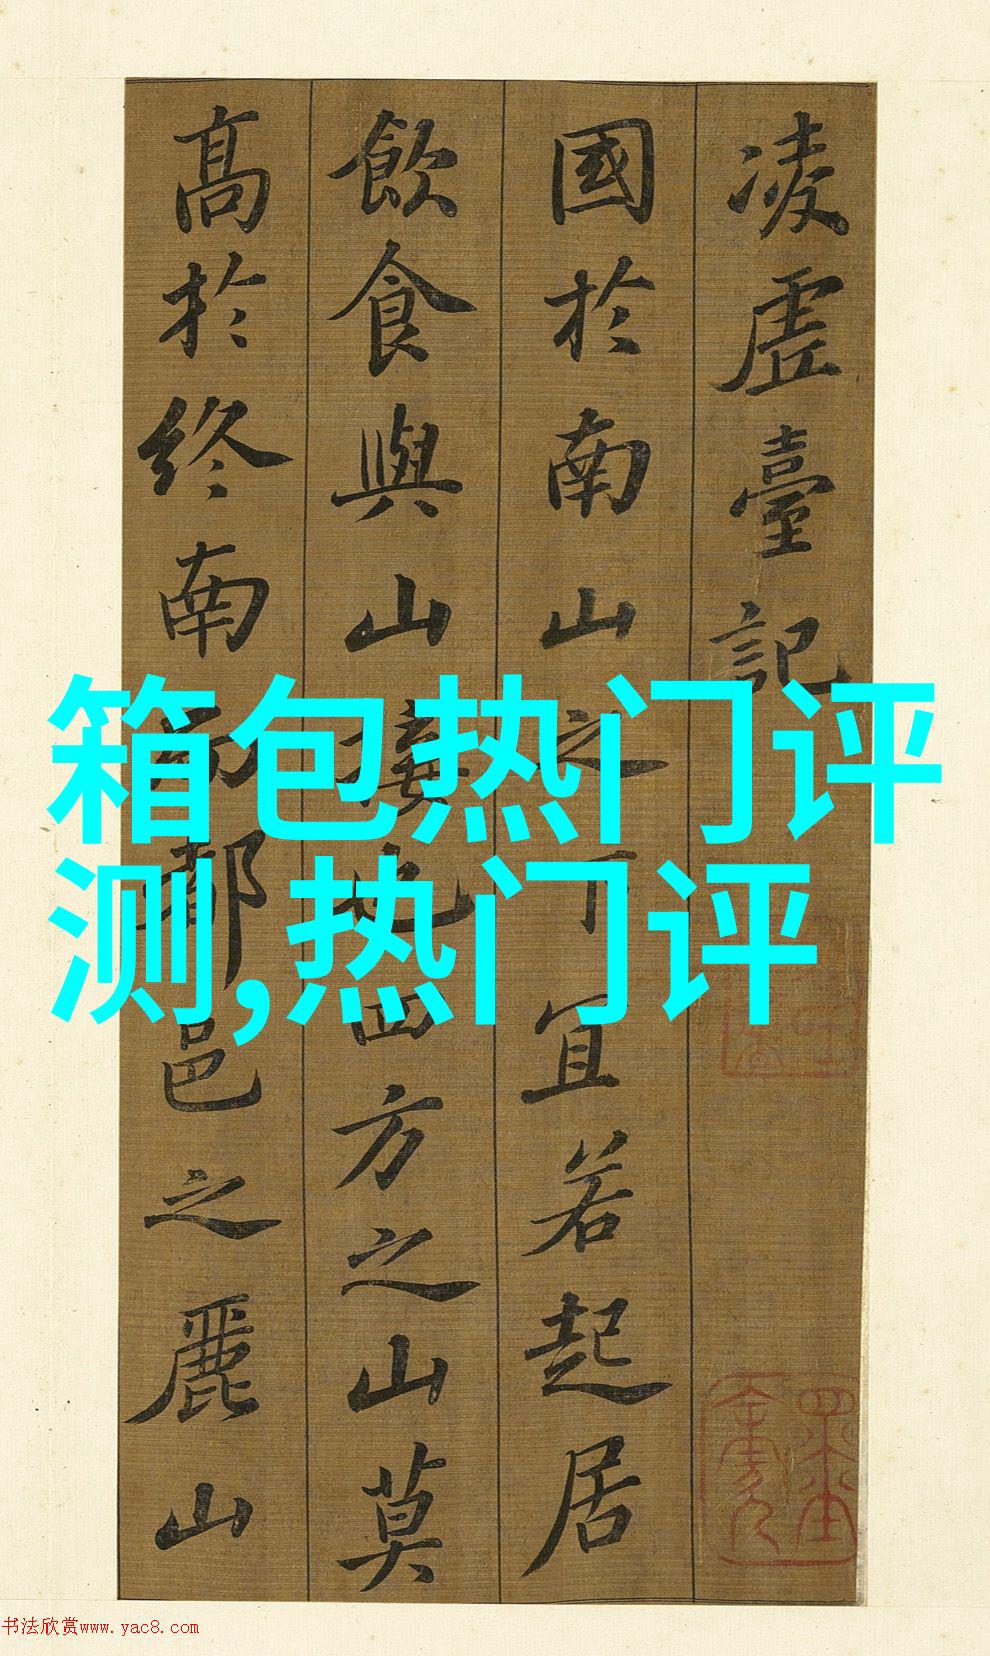 凌虛臺記
國於南山之下宜若起居
飲食與山接也四方之山莫
高於終南而都邑之麗山
箱包热门评
测,热门评
书法欣赏www.yac8.com